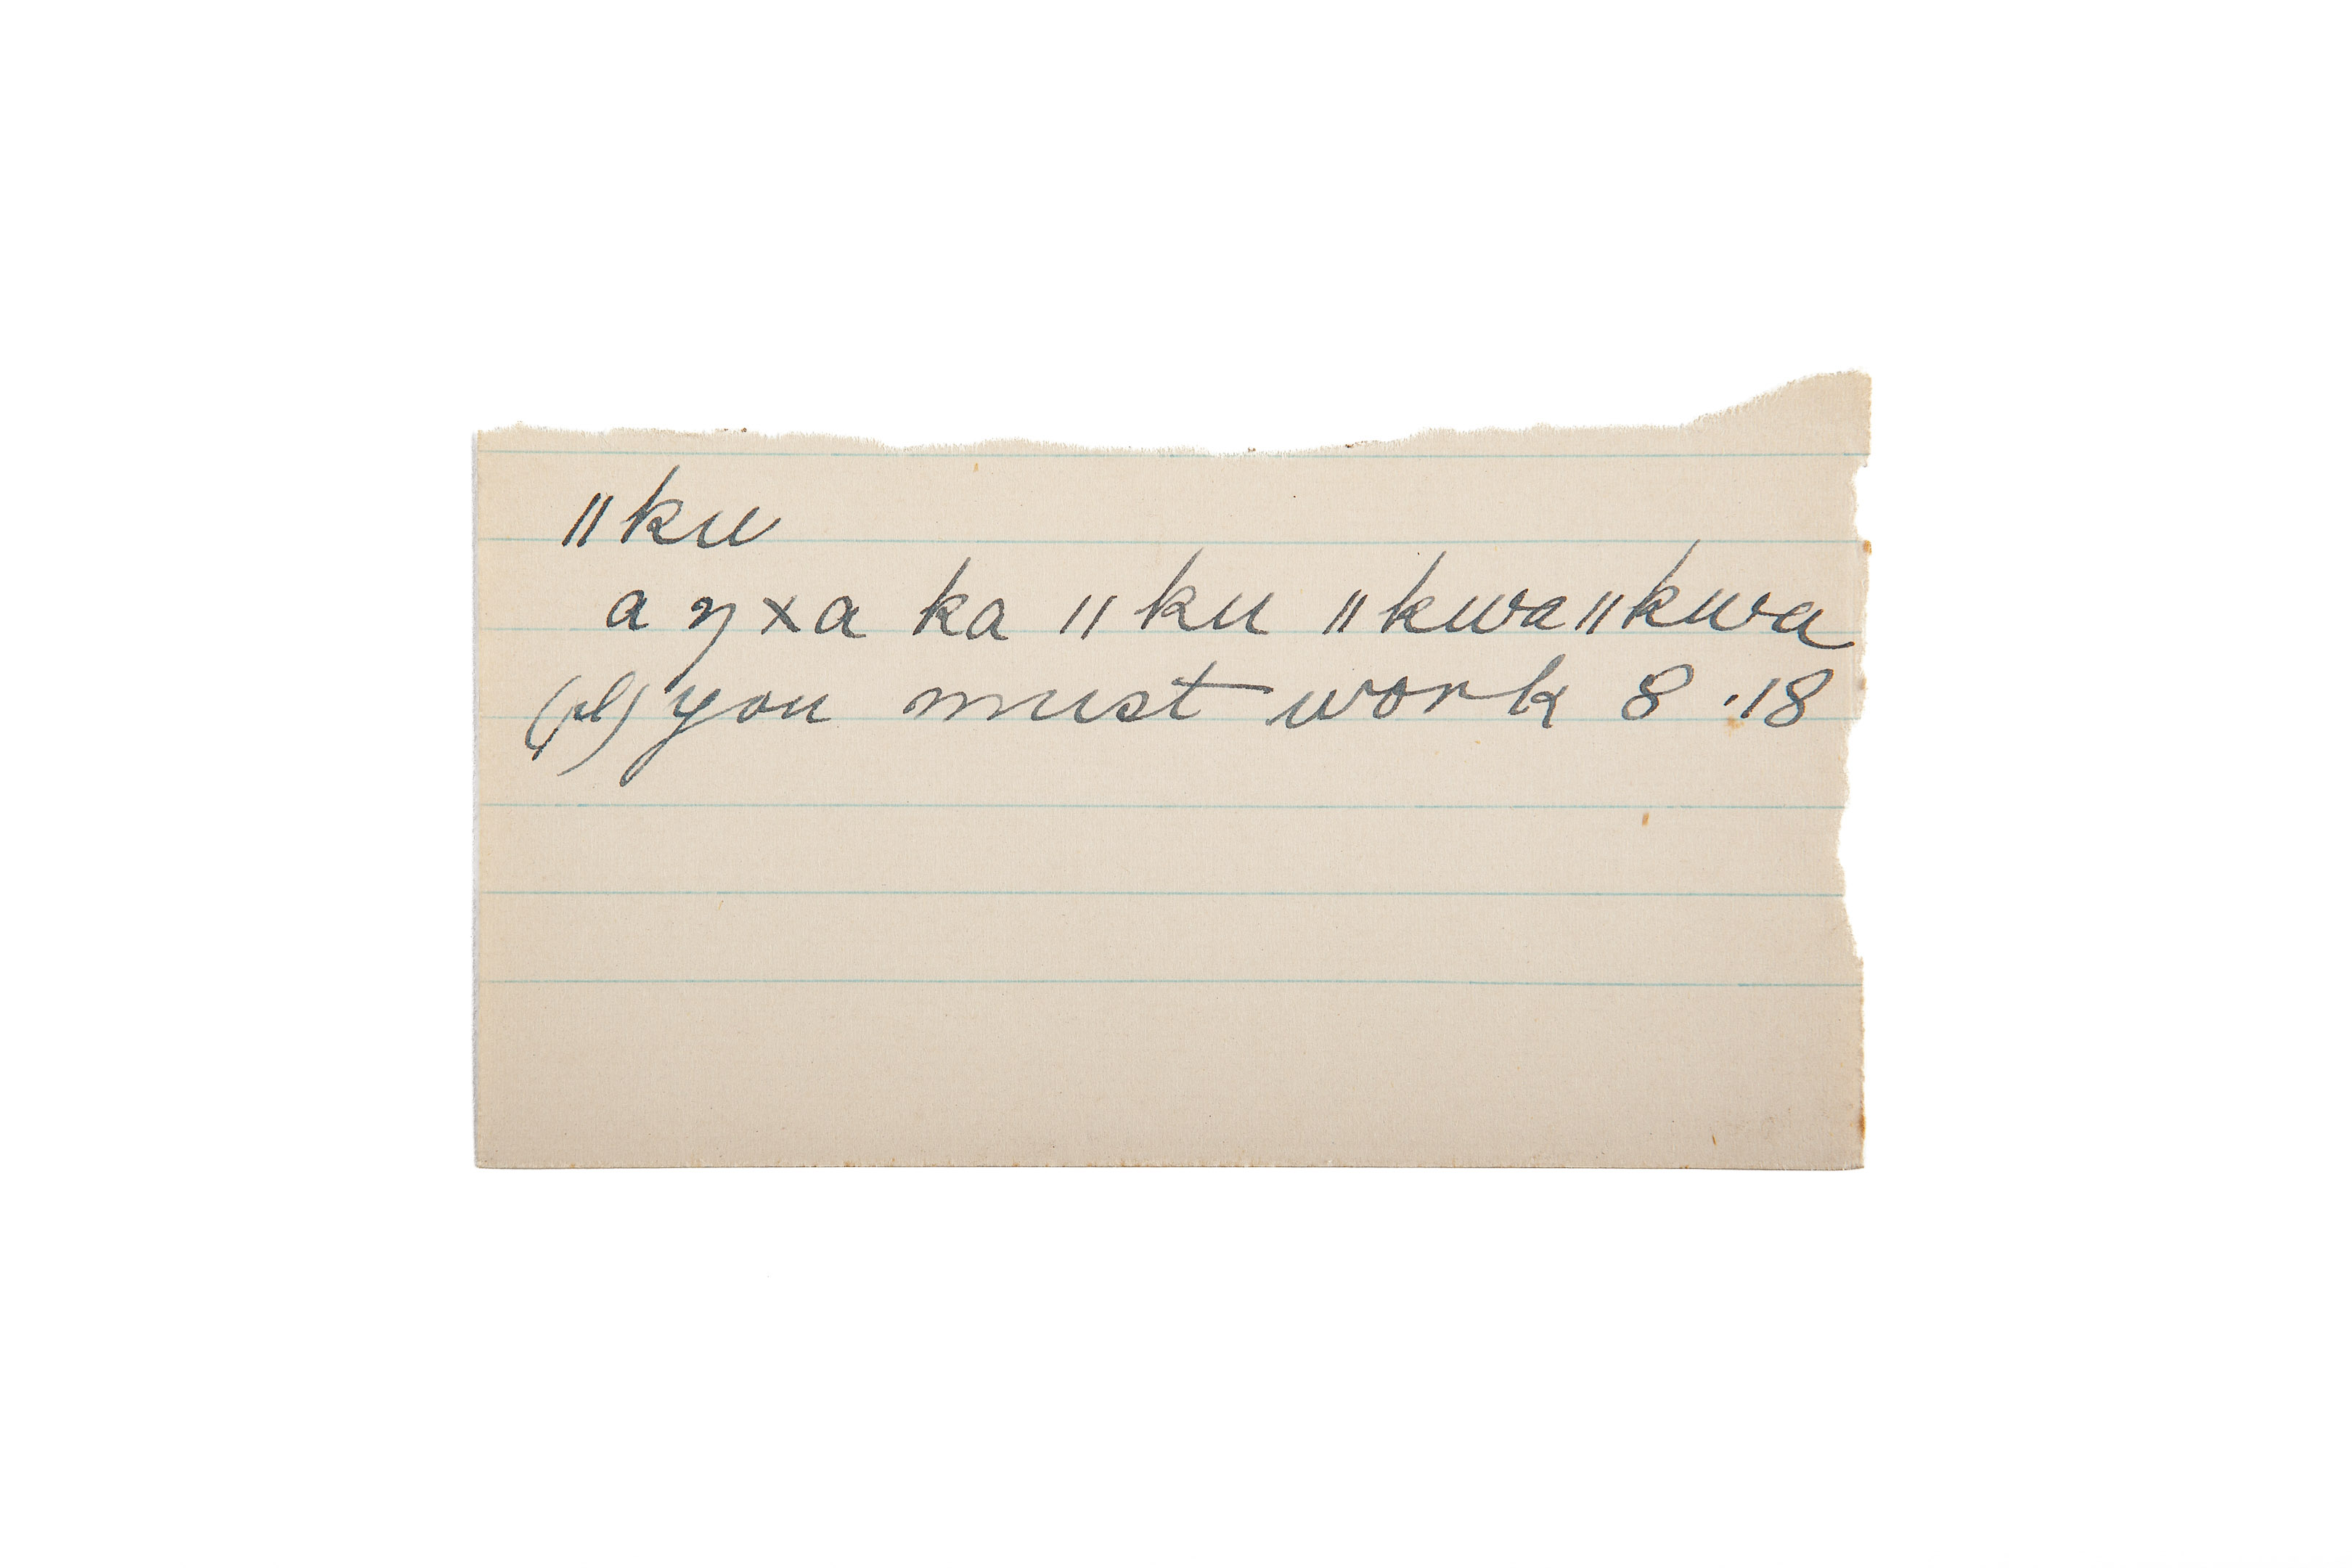 ǁku
a ŋxa ka ǁku ǁkwaǁkwa
(pl) you must work 8.18